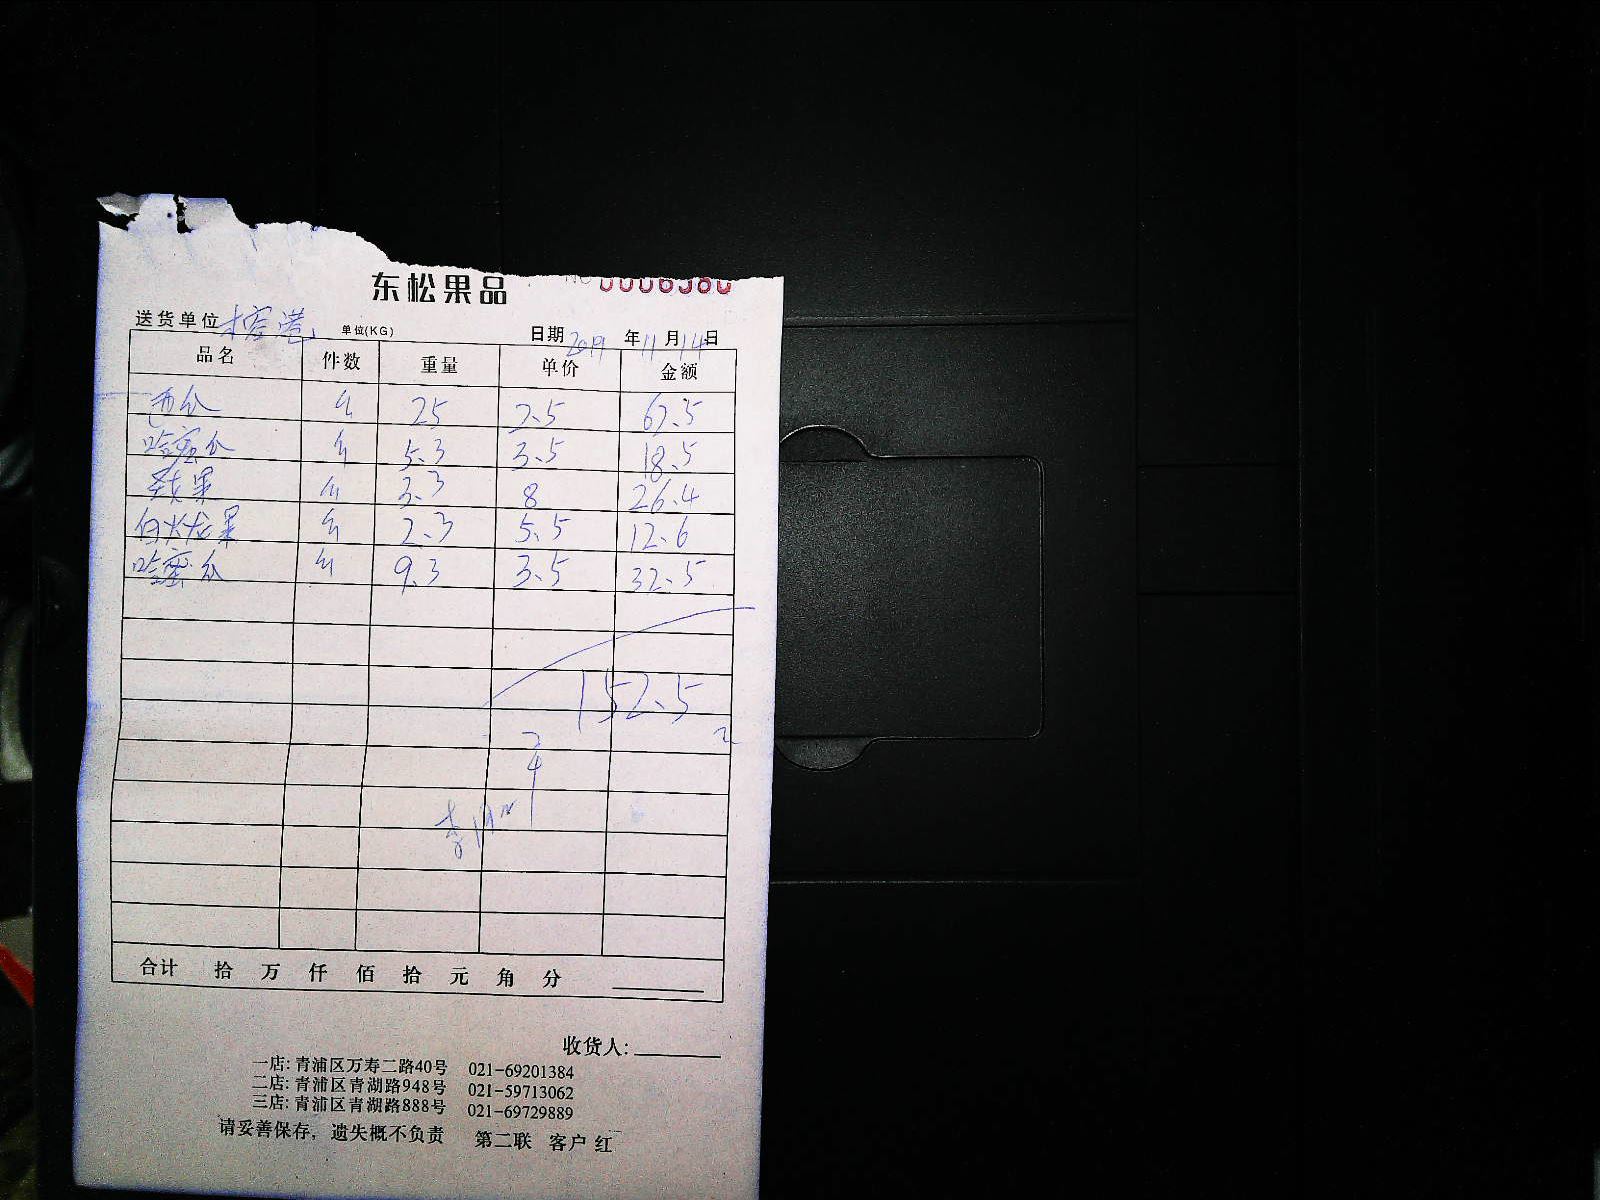 东松果品
送货单位 单位(KG) 日期 2019 年 11 月 14 日
品名 件数 重量 单价 金额
西瓜 25 2.5 62.5
哈蜜瓜 5.3 3.5 18.5
果 3.3 8 26.4
白火龙果 2.3 5.5 12.6
哈蜜瓜 9.3 3.5 32.5
152.5
合计 拾 万 仟 佰 拾 元 角 分
收货人:
一店: 青浦区万寿二路40号 021-69201384
二店: 青浦区青湖路948号 021-59713062
三店: 青浦区青湖路888号 021-69729889
请妥善保存，遗失概不负责 第二联 客户 红